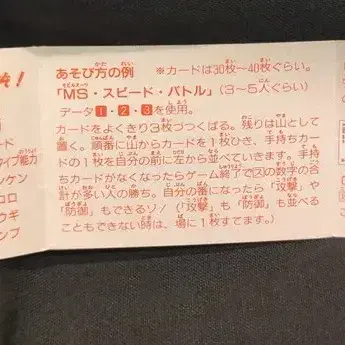 あそび方の例 ※カードは30枚〜40枚ぐらい。
「MS・スピード・バトル」(3〜5人ぐらい)
データ1・2・3を使用。
カードをよくきり3枚づつくばる。残りは山として
置く。順番に山からカードを1枚ひき、手持ちカー
ドの1枚を自分の前に左から並べていきます。手持
ちカードがなくなったらゲーム終了で㋜の数字の合
計が多い人の勝ち。自分の番になったら「攻撃」や
「防御」もできるゾ!(「攻撃」も「防御」も並べる
こともできない時は、場に1枚すてます。)
ード
タイプ能力
ンケン
コロ
ウギ
ンプ